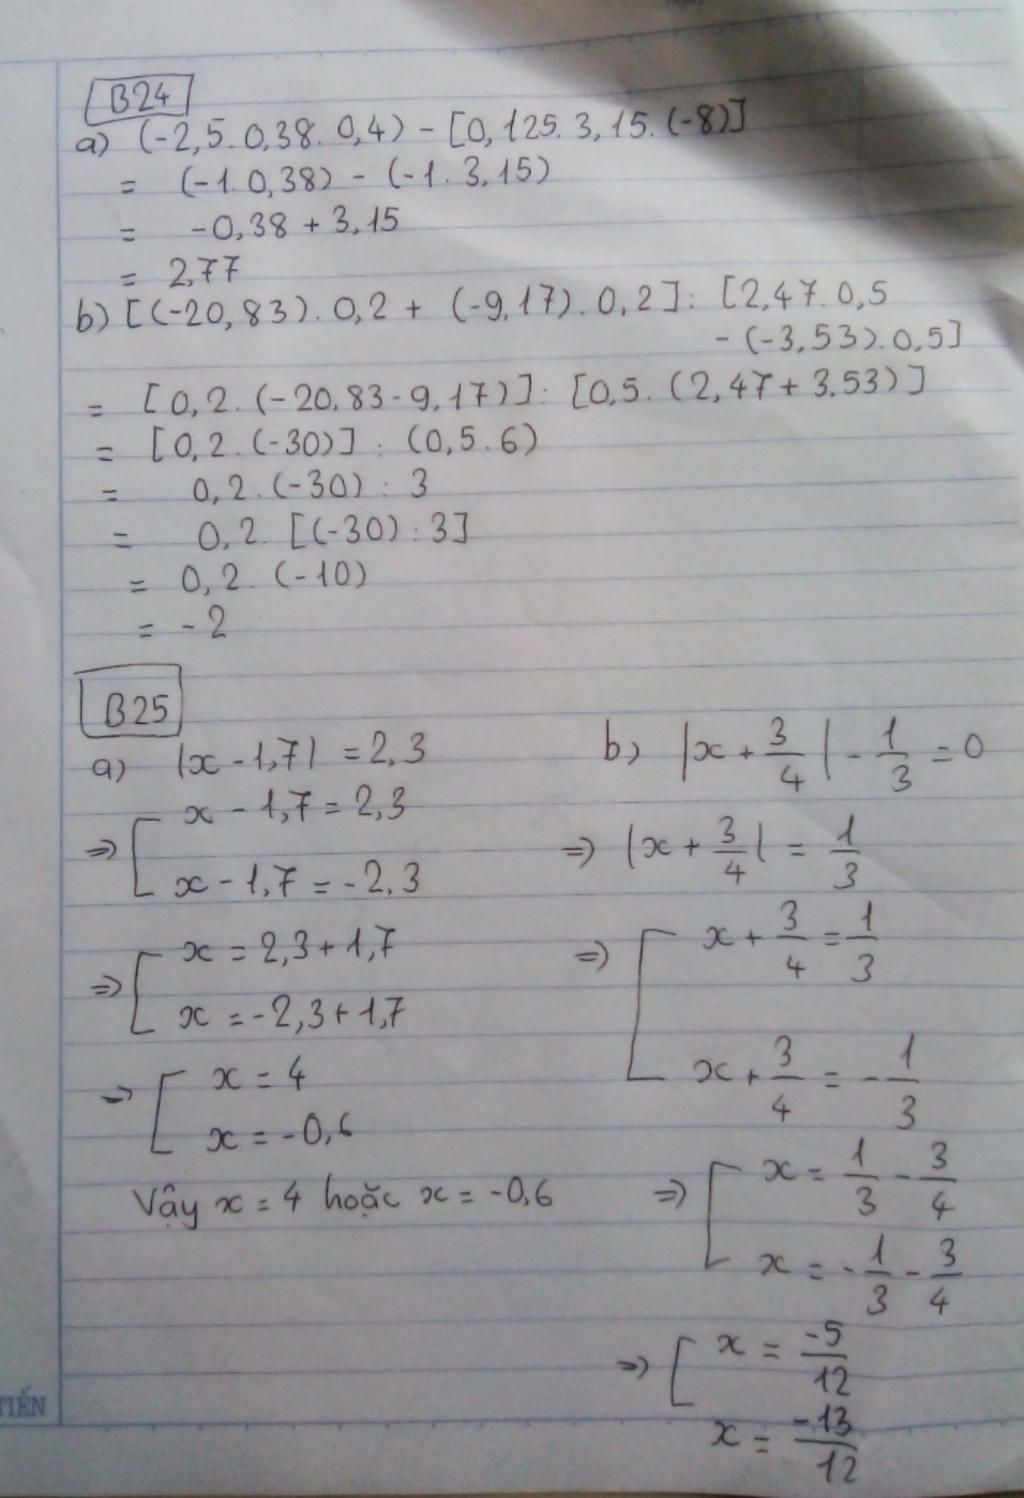 B24
a) (-2,5.0,38.0,4) - [0,125.3,15.(-8)]
= (-1.0,38) - (-1.3,15)
= -0,38 + 3,15
= 2,77
b) [(-20,83).0,2 + (-9,17).0,2] : [2,47.0,5
- (-3,53).0,5]
= [0,2.(-20,83-9,17)] : [0,5.(2,47+3,53)]
= [0,2.(-30)] : (0,5.6)
= 0,2.(-30) : 3
= 0,2.[(-30) : 3]
= 0,2.(-10)
= -2
B25
a) |x - 1,7| = 2,3
⇒ [ x - 1,7 = 2,3
x - 1,7 = -2,3
⇒ [ x = 2,3 + 1,7
x = -2,3 + 1,7
⇒ [ x = 4
x = -0,6
Vậy x = 4 hoặc x = -0,6
b) |x + 3/4| - 1/3 = 0
⇒ |x + 3/4| = 1/3
⇒ [ x + 3/4 = 1/3
x + 3/4 = -1/3
⇒ [ x = 1/3 - 3/4
x = -1/3 - 3/4
⇒ [ x = -5/12
x = -13/12
TIẾN